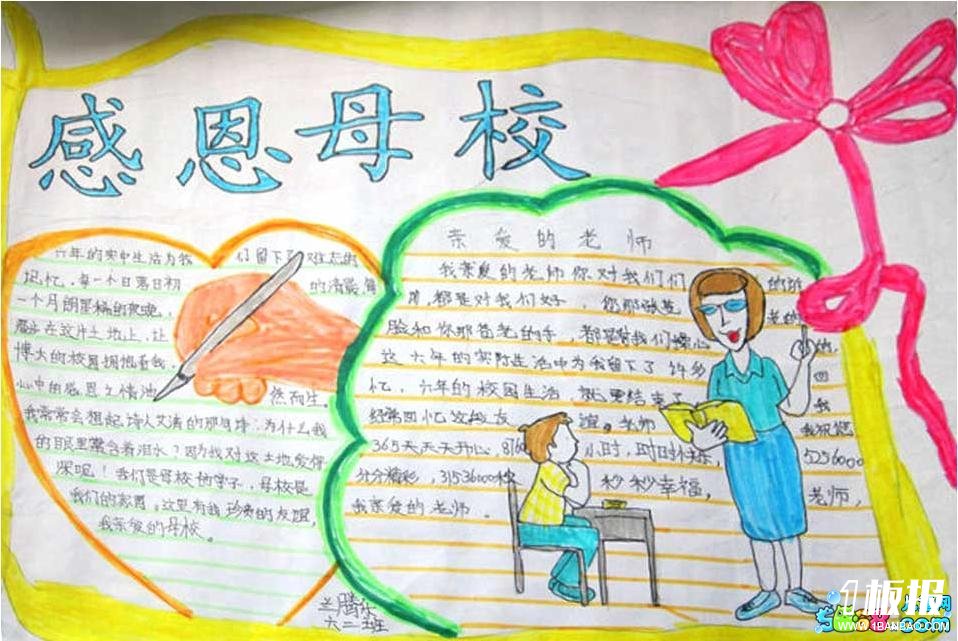 感恩母校
六年的实中生活为我们留下了难忘的
记忆，每一个日落日初的清晨，每
一个月朗星稀的夜晚，
在这片土地上，让
博大的校园拥抱着我，
心中的感恩之情油然而生。
我常常会想起诗人艾青的那句诗：为什么我
的眼里常含着泪水？因为我对这土地爱得
深呢！我们是母校的学子，母校是
我们的家园，这里有我珍贵的友谊，
我亲爱的母校。
亲爱的老师
我亲爱的老师你对我们们的
都是对我们好，您那
脸和你那苍老的手，都是替我们操心的，
这六年的实际生活中为我留下了许多回
忆，六年的校园生活就要结束了，我
经常回忆这段友谊。老师我祝您
365天天天开心，8760小时，时时快乐，5256000
分分精彩，31536000秒秒秒幸福，老师，
我亲爱的老师。
兰腾乐
六二班
1板报
WWW.1BANBAO.COM
.com